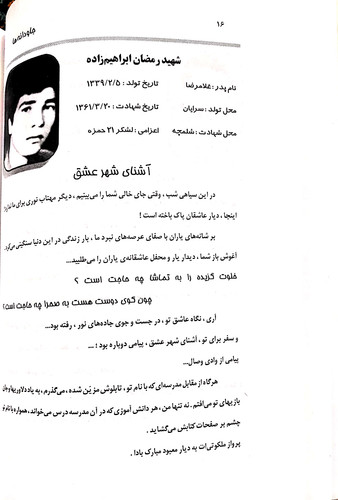 ۱۶
جاودانه‌ها
شهید رمضان ابراهیم‌زاده
نام پدر : غلامرضا تاریخ تولد : ۱۳۳۹/۲/۵
محل تولد : سرایان تاریخ شهادت : ۱۳۶۱/۳/۲۰
محل شهادت : شلمچه اعزامی : لشکر ۲۱ حمزه
آشنای شهر عشق
در این سیاهی شب ، وقتی جای خالی شما را می‌بینیم ، دیگر مهتاب نوری برای ما ندارد
اینجا ، دیار عاشقان پاک باخته است !
بر شانه‌های یاران با صفای عرصه‌های نبرد ما ، بار زندگی در این دنیا سنگینی می‌کرد.
آغوش باز شما ، دیدار یار و محفل عاشقانه‌ی یاران را می‌طلبید...
خلوت گزیده را به تماشا چه حاجت است ؟
چون کوی دوست هست به صحرا چه حاجت است؟
آری ، نگاه عاشق تو ، در جست و جوی جاده‌های نور ، رفته بود...
و سفر برای تو ، آشنای شهر عشق ، پیامی دوباره بود ! ...
پیامی از وادی وصال...
هرگاه از مقابل مدرسه‌ای که با نام تو ، تابلوش مزیّن شده ، می‌گذرم ، به یاد دلاوریها و جان
بازیهای تو می‌افتم . نه تنها من ، هر دانش آموزی که در آن مدرسه درس می‌خواند ، همواره با نام تو
چشم بر صفحات کتابش می‌گشاید .
پرواز ملکوتی‌ات به دیار معبود مبارک بادا .